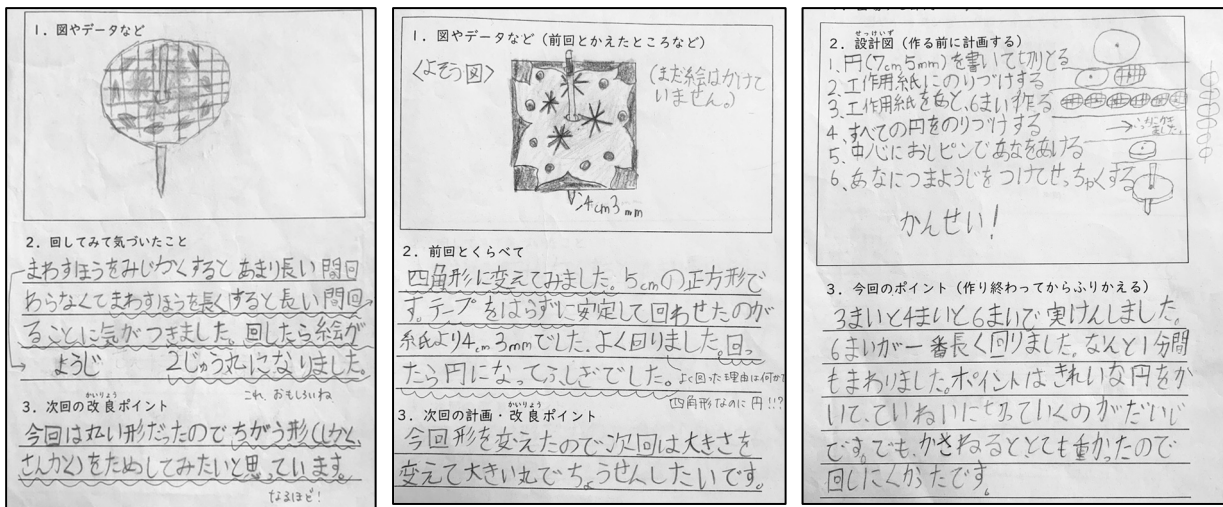 1. 図やデータなど
2. 回してみて気づいたこと
まわすほうをみじかくするとあまり長い間回
わらなくてまわすほうを長くすると長い間回
ることに気がつきました。回したら絵が
ようじ
2じゅう丸になりました。
これ、おもしろいね
3. 次回の改良ポイント
かいりょう
今回は丸い形だったのでちがう形(しかく、
さんかく)をためしてみたいと思っています。
なるほど!
1. 図やデータなど(前回とかえたところなど)
〈よそう図〉
(まだ絵はかけて
いません。)
4cm3mm
2. 前回とくらべて
四角形に変えてみました。5cmの正方形で
す。テープをはらずに安定して回わせたのが
紙より4cm3mmでした。よく回りました。回っ
たら円になってふしぎでした。
よく回った理由は何かな
四角形なのに円!!?
3. 次回の計画・改良ポイント
かいりょう
今回形を変えたので次回は大きさを
変えて大きい丸でちょうせんしたいです。
せっけいず
2. 設計図(作る前に計画する)
1、円(7cm5mm)を書いて切りとる
2、工作用紙にのりづけする
3、工作用紙をあと、6まい作る
4、すべての円をのりづけする
5、中心におしピンであなをあける
6、あなにつまようじをつけてせっちゃくする
かんせい!
3. 今回のポイント(作り終わってからふりかえる)
3まいと4まいと6まいで実けんしました。
6まいが一番長く回りました。なんと1分間
もまわりました。ポイントはきれいな円をか
いて、ていねいに切っていくのがだいじ
です。でも、かさねるととても重かったので
回しにくかったです。